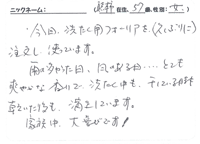 ニックネーム: 既幹 年代: 57歳、性別( 女 )
今回、洗たく用フォーリアを(久しぶりに)
注文し使っています。
雨の多かった日、風のある日…とても
爽やかな香りで、洗たく中も、干している時
乾いた時も、満足しています。
家族中、大喜びです!